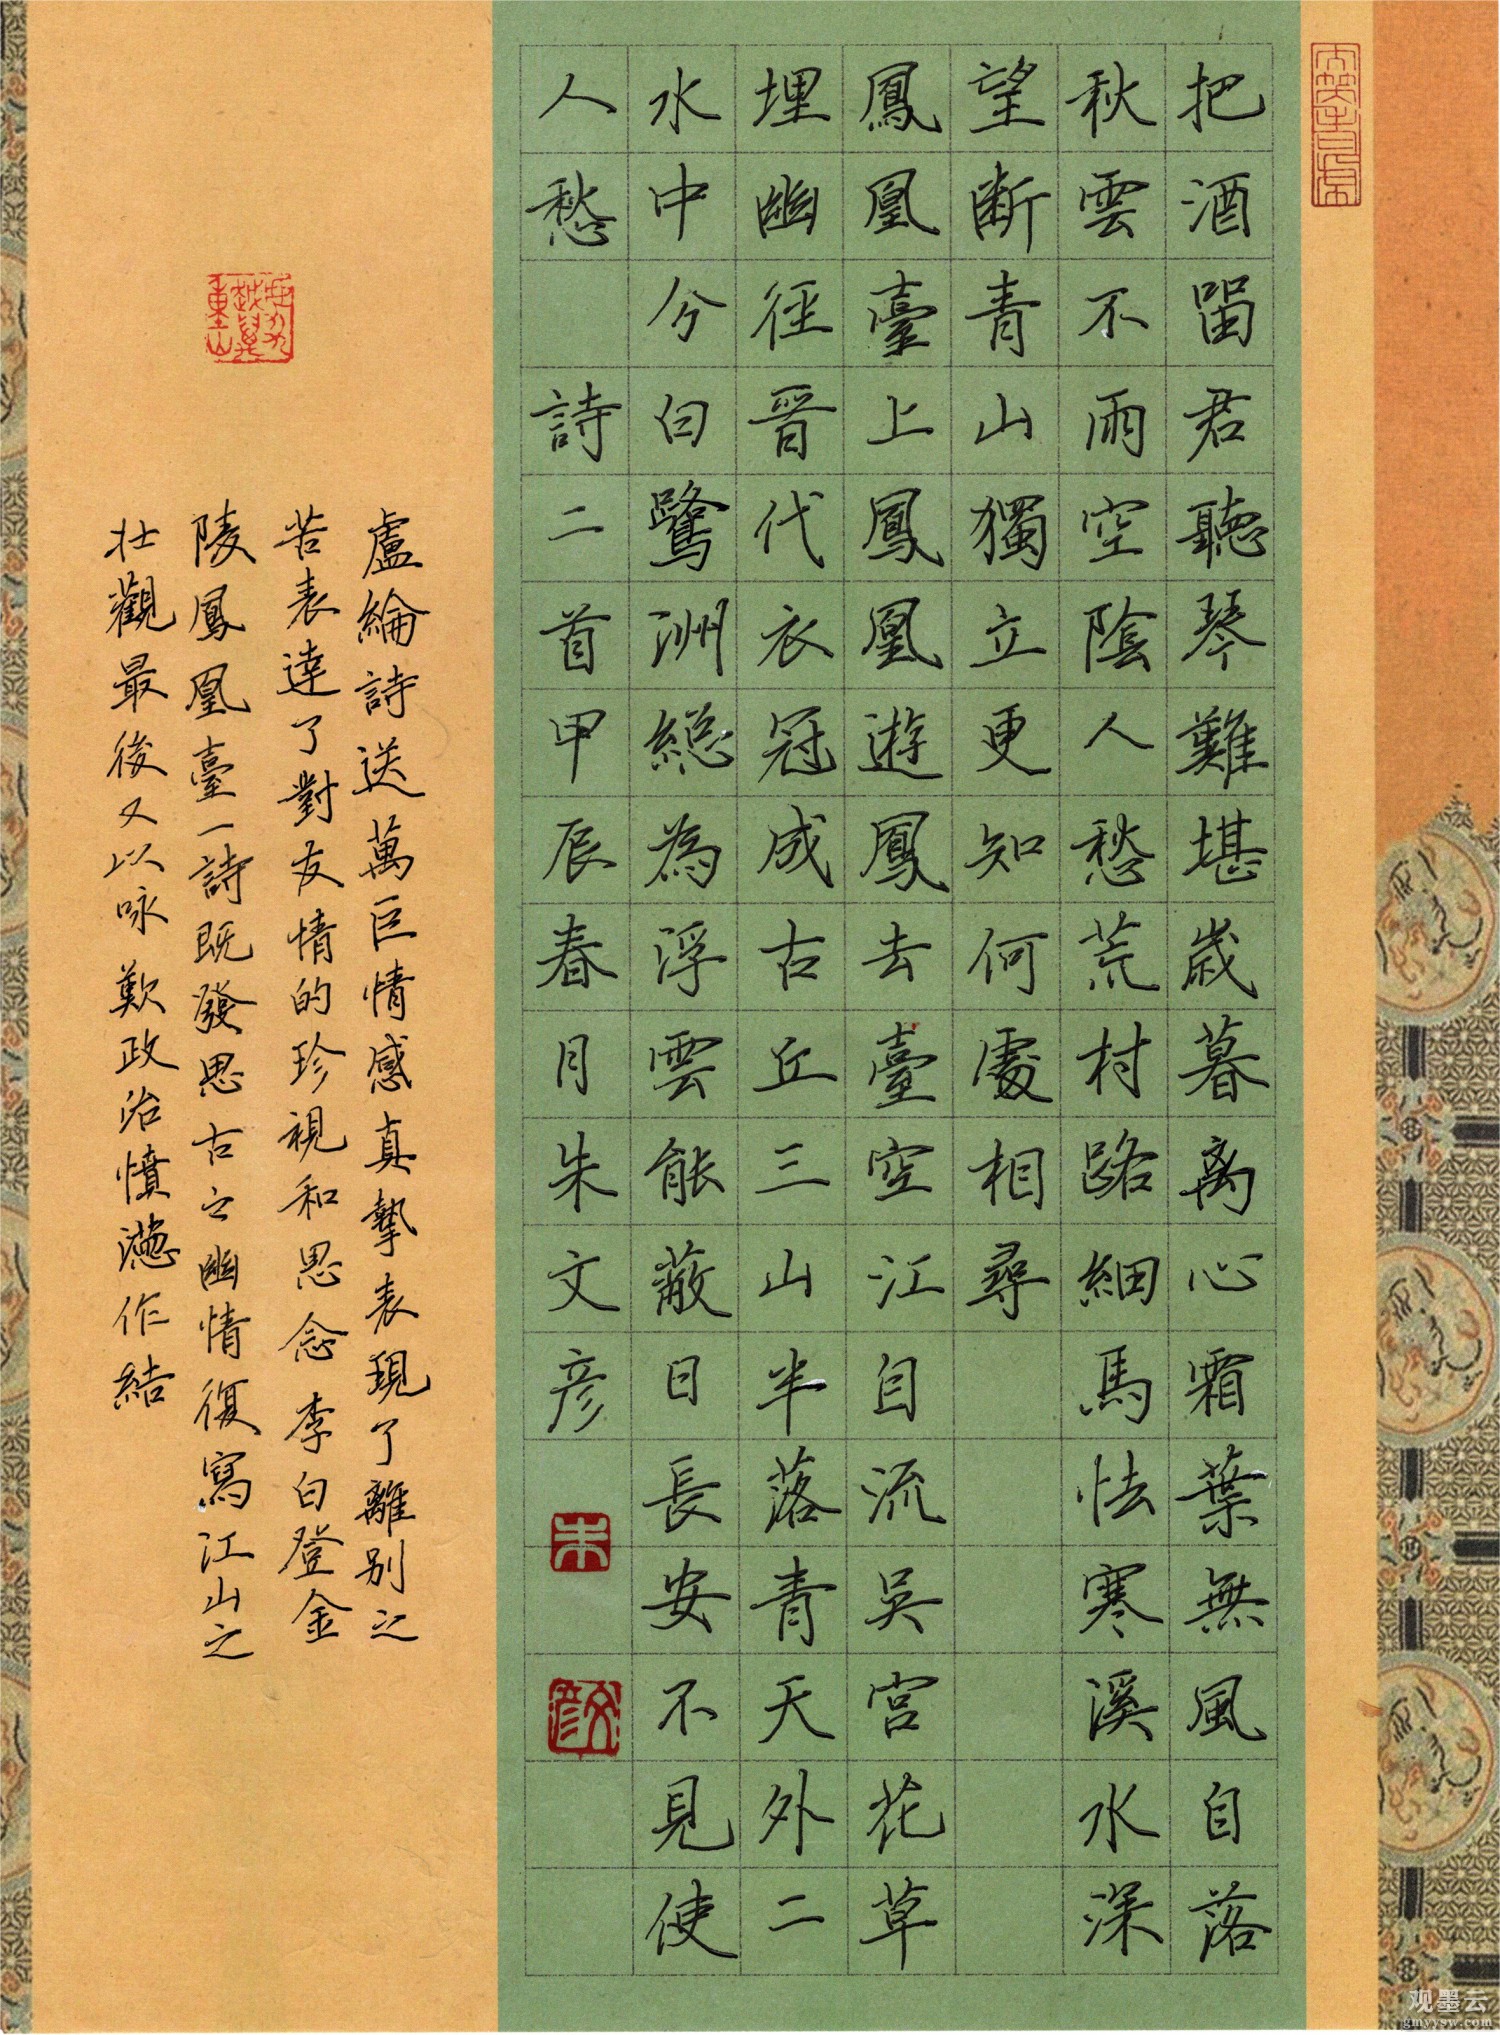 把酒留君聽琴難堪歳暮离心霜葉無風自落
秋雲不雨空陰人愁荒村路細馬怯寒溪水深
望断青山獨立更知何處相尋
鳳凰臺上鳳凰遊鳳去臺空江自流吳宮花草
埋幽徑晉代衣冠成古丘三山半落青天外二
水中分白鷺洲總為浮雲能蔽日長安不見使
人愁 詩二首甲辰春月朱文彦
朱
文彦
盧綸詩送萬巨情感真摯表現了離别之
苦表達了對友情的珍視和思念李白登金
陵鳳凰臺一詩既發思古之幽情復寫江山之
壮觀最後又以咏歎政治憤懣作結
观墨云
gmyysw.com